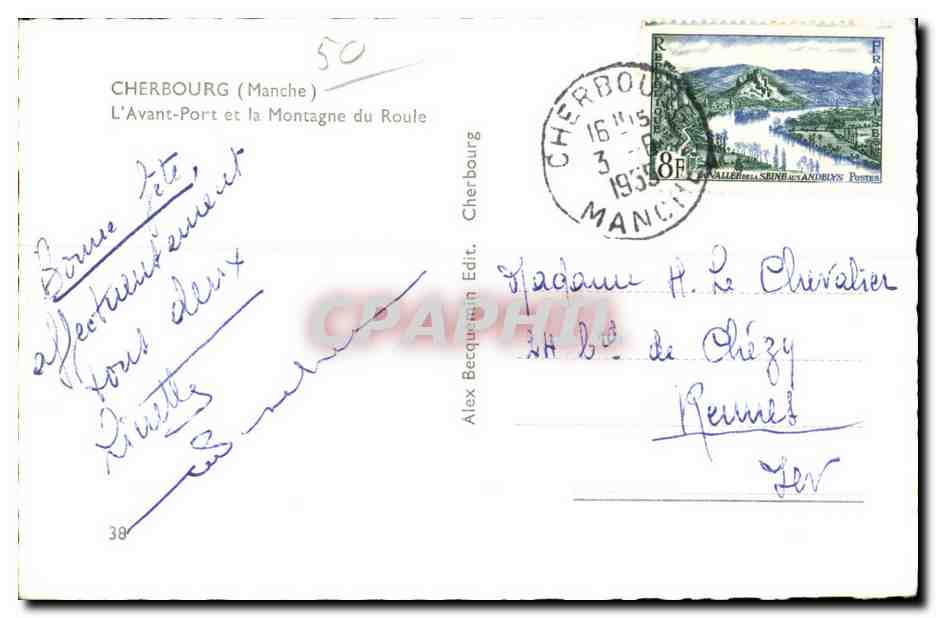 50
CHERBOURG (Manche)
L'Avant-Port et la Montagne du Roule
Bonne fête
affectueusement
tous deux
Linette
38
Alex Becquemin Edit. Cherbourg
CHERBOURG
16H15
3
1955
MANCHE
REPUBLIQUE
FRANCAISE
8F
LA VALLEE DE LA SEINE AUX ANDELYS POSTES
Madame H. Le Chevalier
24 Bd de Chézy
Rennes
CPAPHIL